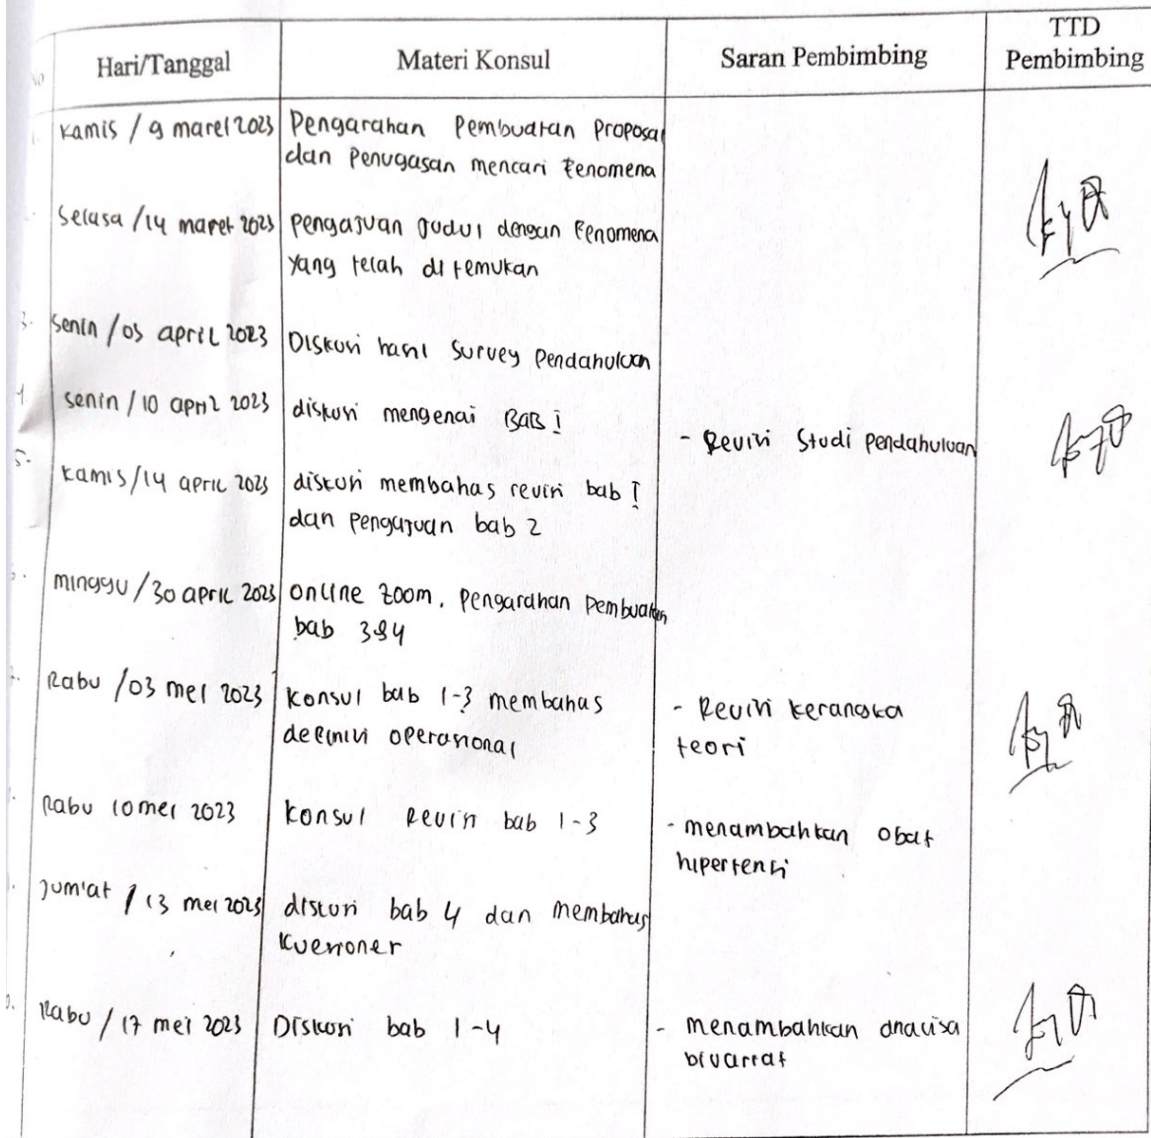 No
Hari/Tanggal
Materi Konsul
Saran Pembimbing
TTD
Pembimbing
Kamis / 9 maret 2023
Pengarahan Pembuatan Proposal
dan Penugasan mencari Fenomena
Selasa / 14 maret 2023
pengajuan Judul dengan Fenomena
yang telah di temukan
3.
Senin / 03 april 2023
Diskusi hasil Survey Pendahuluan
4.
Senin / 10 april 2023
diskusi mengenai BAB I
- Revisi Studi Pendahuluan
5.
Kamis / 14 april 2023
diskusi membahas revisi bab I
dan pengajuan bab 2
minggu / 30 april 2023
online zoom. Pengarahan Pembuatan
bab 3&4
Rabu / 03 mei 2023
Konsul bab 1-3 membahas
definisi operasional
- Revisi kerangka
teori
Rabu 10 mei 2023
Konsul Revisi bab 1-3
- menambahkan obat
hipertensi
Jum'at / 13 mei 2023
diskusi bab 4 dan membahas
Kuesioner
Rabu / 17 mei 2023
Diskusi bab 1-4
- menambahkan analisa
bivariat